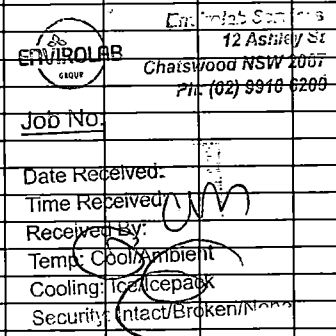 ENVIROLAB
GROUP
Envirolab Services
12 Ashley St
Chatswood NSW 2067
Ph: (02) 9910 6200
Job No.
Date Received:
Time Received:
Received By:
Temp: Cool/Ambient
Cooling: Ice/Icepack
Security: Intact/Broken/None